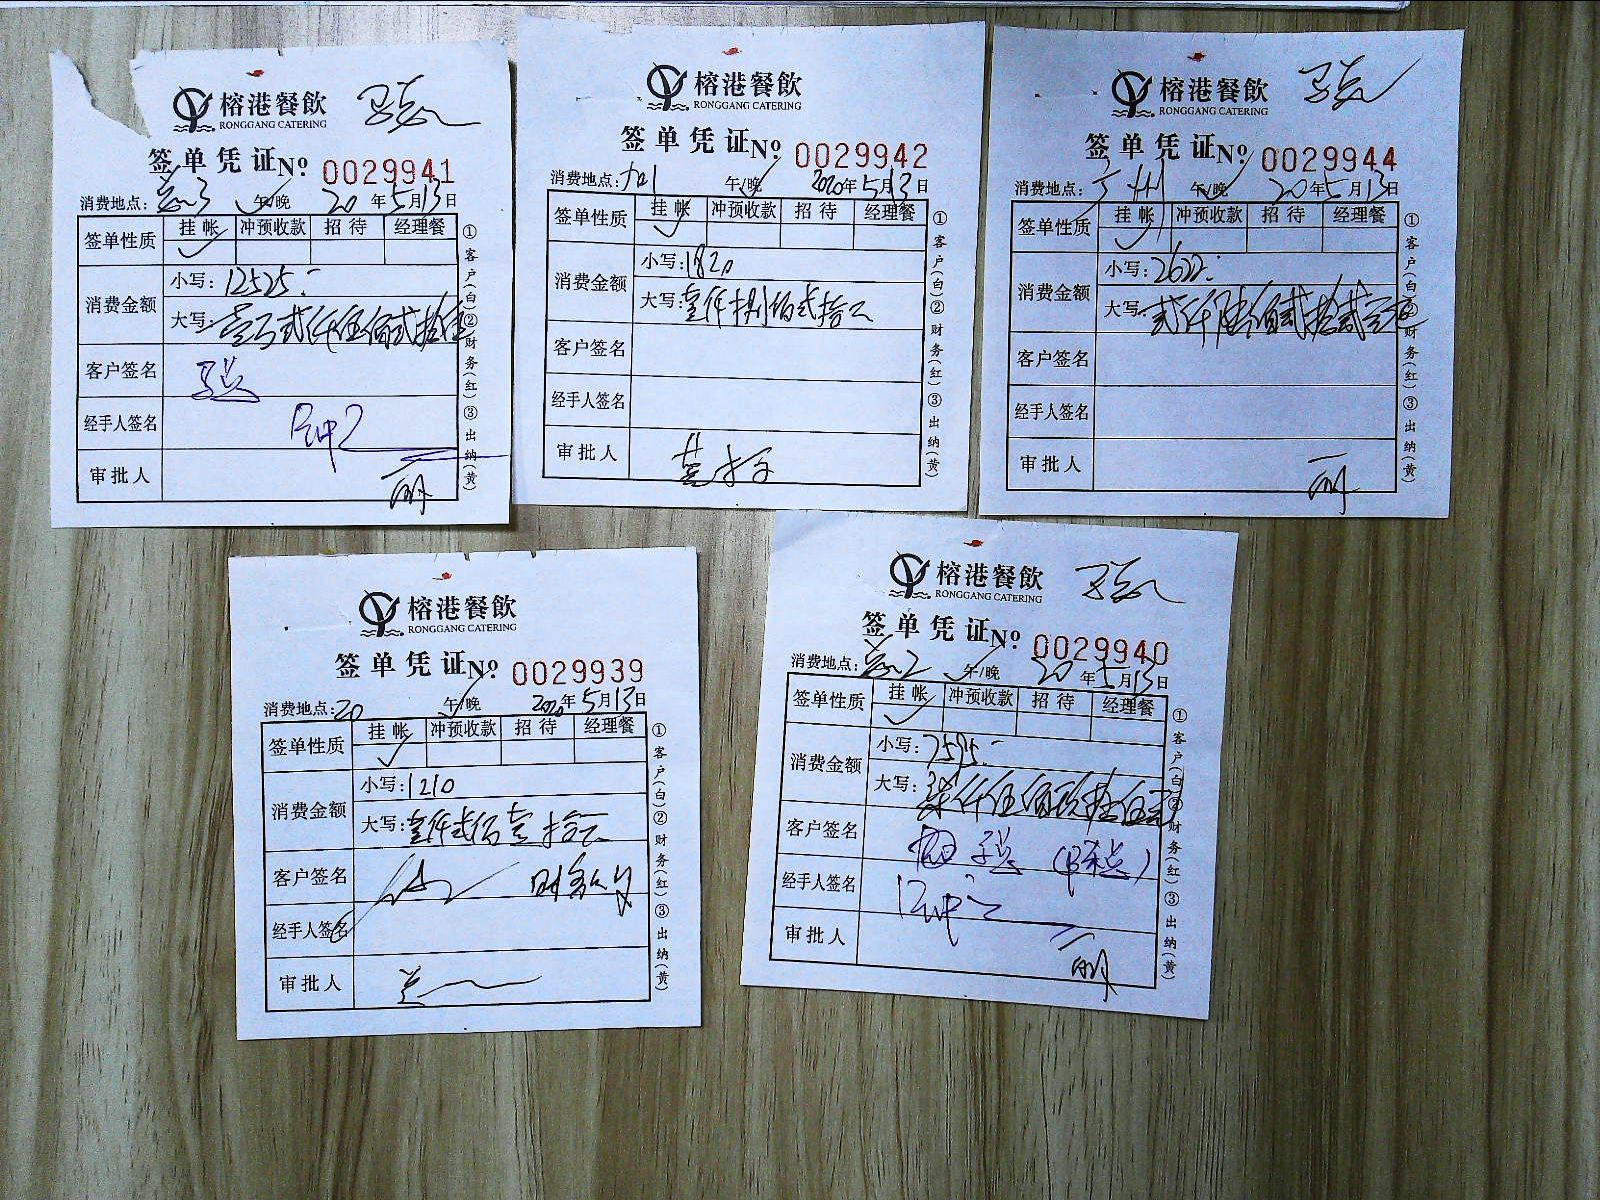 榕港餐飲
RONGGANG CATERING
签单凭证 No 0029941
消费地点: 3 午/晚 20年5月13日
签单性质 挂帐 冲预收款 招待 经理餐
消费金额
小写: 12525.-
大写: 壹万贰仟伍佰贰拾伍
客户签名
经手人签名
审批人
①客户(白)②财务(红)③出纳(黄)
榕港餐飲
RONGGANG CATERING
签单凭证 No 0029942
消费地点: 加1 午/晚 2020年5月13日
签单性质 挂帐 冲预收款 招待 经理餐
消费金额
小写: 1820
大写: 壹仟捌佰贰拾元
客户签名
经手人签名
审批人
①客户(白)②财务(红)③出纳(黄)
榕港餐飲
RONGGANG CATERING
签单凭证 No 0029944
消费地点: 广州 午/晚 20年5月13日
签单性质 挂帐 冲预收款 招待 经理餐
消费金额
小写: 2622.-
大写: 贰仟陆佰贰拾贰元
客户签名
经手人签名
审批人
①客户(白)②财务(红)③出纳(黄)
榕港餐飲
RONGGANG CATERING
签单凭证 No 0029939
消费地点: 20 午/晚 2020年5月13日
签单性质 挂帐 冲预收款 招待 经理餐
消费金额
小写: 1210
大写: 壹仟贰佰壹拾元
客户签名
经手人签名
审批人
①客户(白)②财务(红)③出纳(黄)
榕港餐飲
RONGGANG CATERING
签单凭证 No 0029940
消费地点: 2 午/晚 20年5月13日
签单性质 挂帐 冲预收款 招待 经理餐
消费金额
小写: 7595.-
大写: 柒仟伍佰玖拾伍元
客户签名
经手人签名
审批人
①客户(白)②财务(红)③出纳(黄)